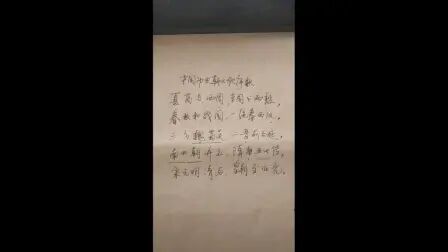 中国历史朝代顺序歌
夏商与西周，东周分两段，
春秋和战国，一统秦两汉，
三分魏蜀吴，二晋前后延，
南北朝并立，隋唐五代传，
宋元明清后，皇朝至此完。